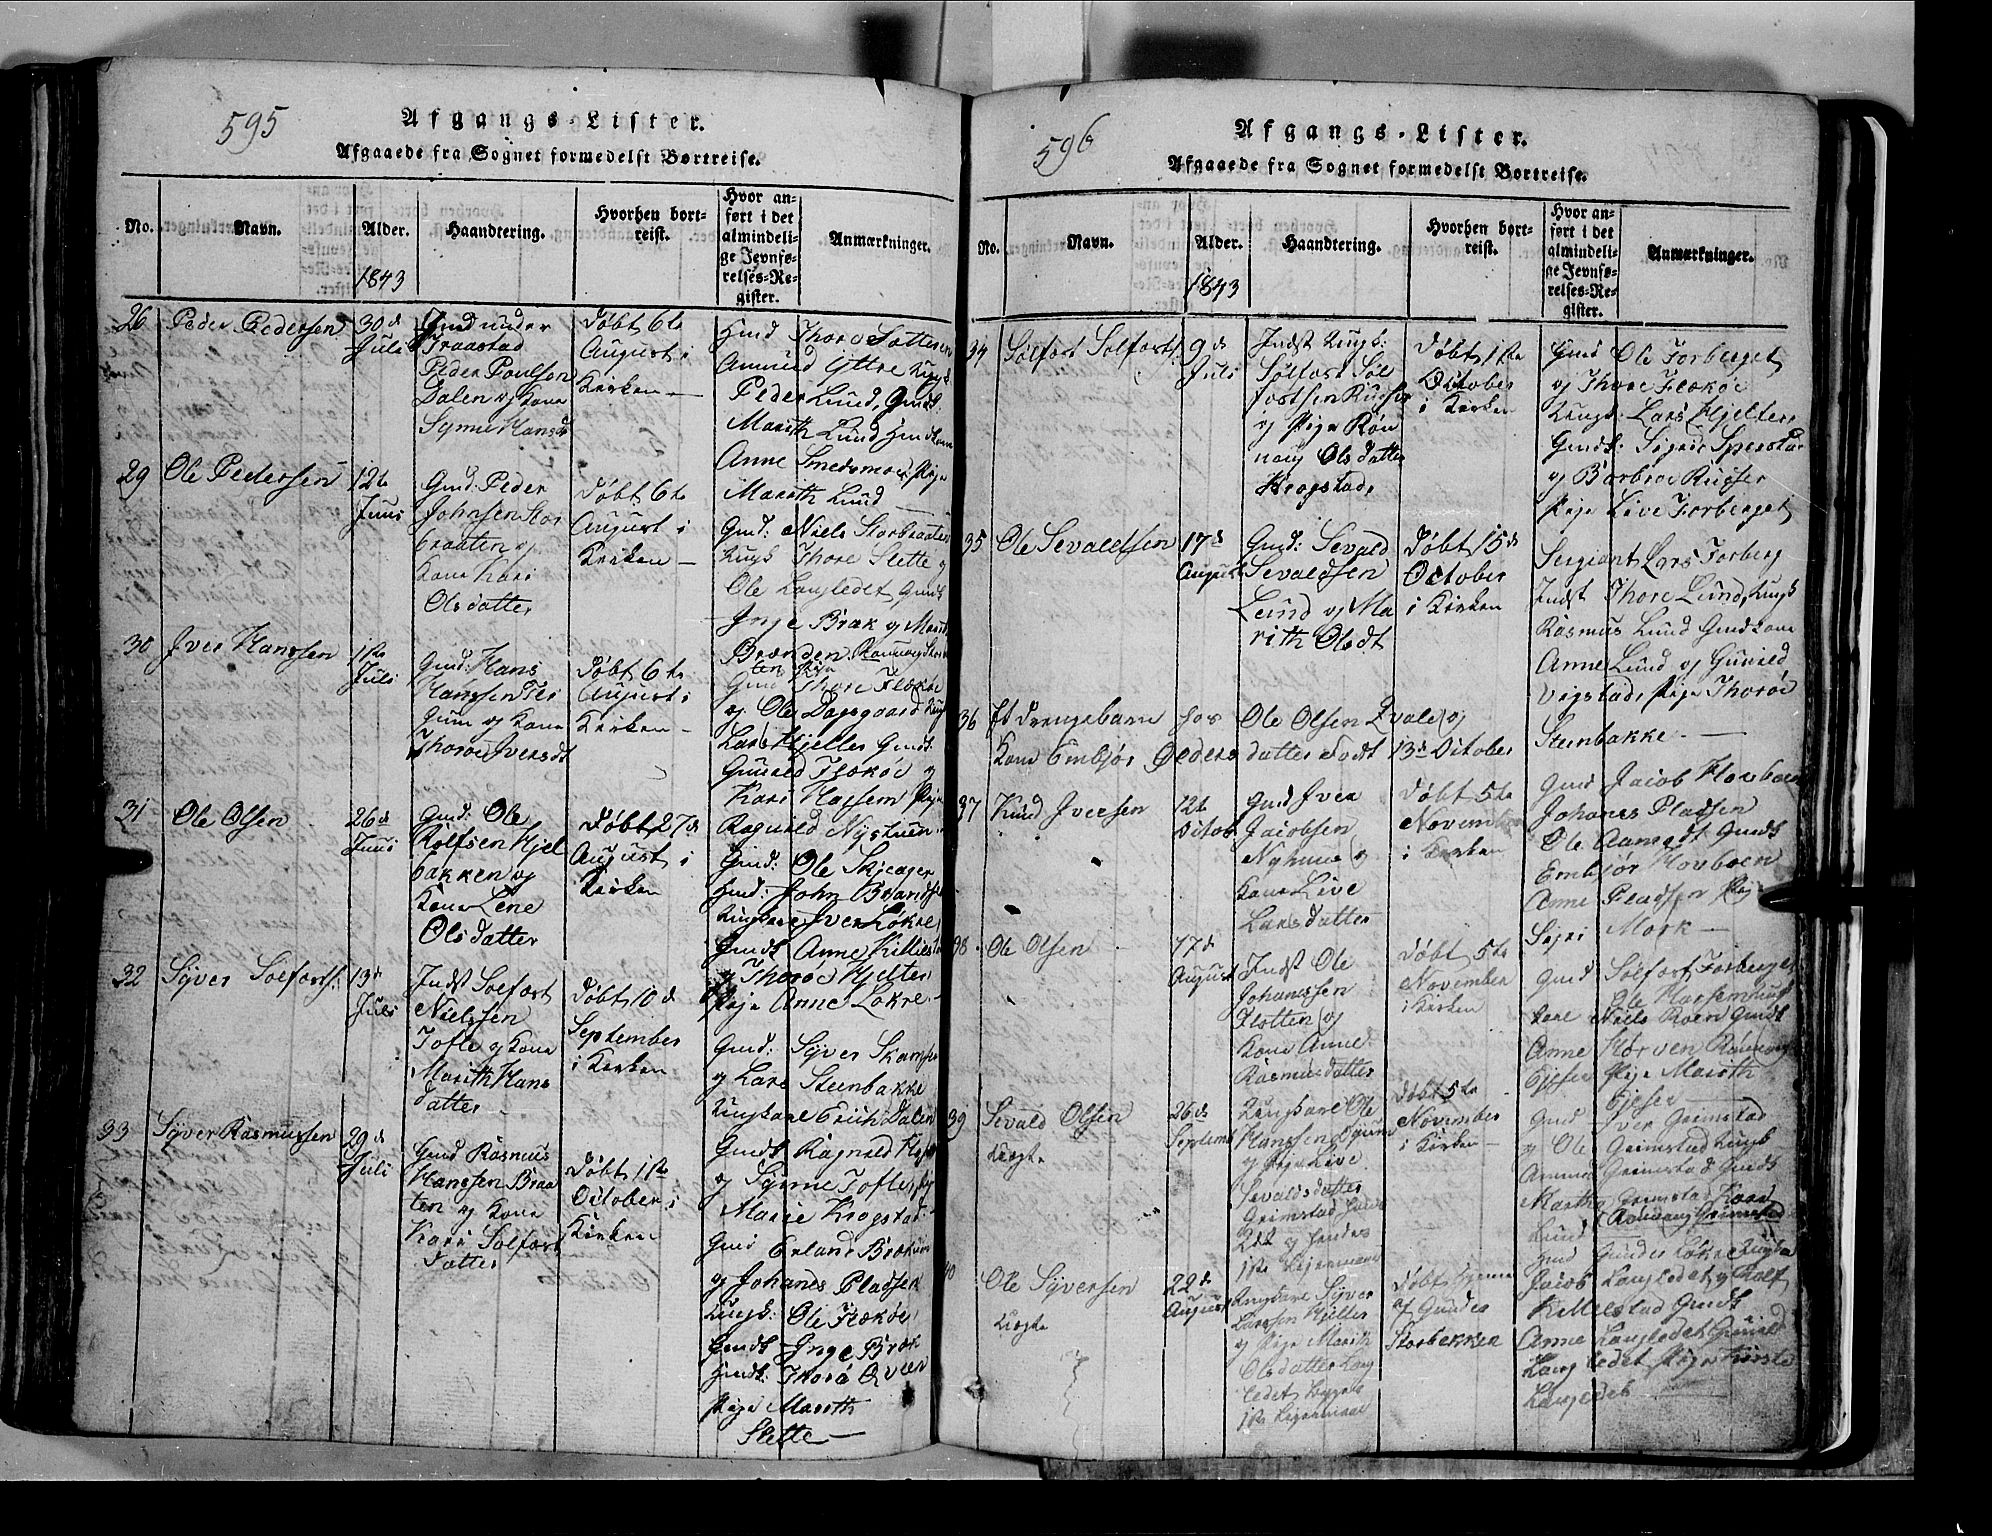 595
Afgangs-Lister.
Afgaaede fra Sognet formedelst Bortreise.
No.
Navn.
Alder.
1843
Haandtering.
Hvorhen bort-
reist.
Hvor an-
ført i det
almindeli-
ge Jevnfø-
relses-Re-
gister.
Anmærkninger.
26
Peder Pedersen
30d
Juli
Gmd under
Traastad
Peder Poulsen
Dalen og Kone
Synne Hansd
Døbt 6te
August i
Kirken
Gmd Thore Sletten
Amund Yttre
Peder Lund, Gmdk
Marith Lund
Anne Smedsmoe, Pige
Marith Lund
29
Ole Pedersen
12te
Juni
Gmd: Peder
Johnsen Stor
braaten og
Kone Kari
Olsdatter
Døbt 6te
August i
Kirken
Gmd: Niels Storbraaten
Ungk Thore Slette og
Ole Langledet, Gmdk
Inge Bræk og Marith
Brænden
30
Iver Hanssen
1ste
Juli
Gmd: Hans
Hanssen
og Kone
Thoroe Iversdt
Døbt 6te
August i
Kirken
Gmd Thore Flekøe
og Ole Dagsgaard Ungk
Lars Hjelter Gmdk
Gunild Flekøe og
Kari Hassem Pige
Ragnild Nystuen
31
Ole Olsen
26d
Juni
Gmd: Ole
Rolfsen Hjel
bakken og
Kone Lene
Olsdatter
Døbt 27d
August i
Kirken
Gmd: Ole Skjeager
Gmd: John Brænd
Ungkarl Iver Løkre
Gmdk Anne Killiestad
og Thoroe Hjelter
Pige Anne Løkre
32
Syver Solforts:
13d
Juli
Indst Solfort
Nielssen
Tofte og Kone
Marith Hans
datter
Døbt 10d
September
i Kirken
Gmd: Syver
og Lars Steenbakke
Ungkarl Erich Dalen
Gmdk Ragnild
og Synne Tofte, Pige
Marie Krogstad
33
Syver Rasmussen
29d
Juli
Gmd Rasmus
Hanssen Braa
ten og Kone
Kari Solfort
datter
Døbt 1ste
October i
Kirken
Gmd Erland Brækum
og Johanes Pladsen
Ungk: Ole Flekøe
Gmdk Inge Bræk
Gmdk: Thora Qveen
Pige Marith
Slette
596
Afgangs-Lister.
Afgaaede fra Sognet formedelst Bortreise.
No.
Navn.
Alder.
1843
Haandtering.
Hvorhen bort-
reist.
Hvor an-
ført i det
almindeli-
ge Jevnfø-
relses-Re-
gister.
Anmærkninger.
34
Solfort Solforts
9d
Juli
Indst Ungk:
Solfort Sol
fortsen Rusten
og Pige Røn
naug Olsdatter
Krogstad
Døbt 1ste
October
i Kirken
Gmd Ole Forberget
og Thore Flekøe
Ungk: Lars Hjelter
Gmdk: Sigrid Sperstad
og Barbroe Rusten
Pige Live Forberget
35
Ole Sevaldsen
17d
August
Gmd: Sevald
Sevaldsen
Lund og Ma
rith Olsdt
Døbt 15d
October
i Kirken
Sergiant Lars Forberg
Indst Thore Lund, Ungk
Rasmus Lund Gmdkone
Anne Lund og Gunild
Vigstad, Pige Thoroe
Steenbakke
36
Et Drengebarn hos Ole Olsen Qvale og
Kone Embjør Peders datter Født 13d October
37
Knud Iversen
12te
Octob
Gmd Iver
Jacobsen
Nyhuus og
Kone Live
Larsdatter
Døbt 5te
November
i Kirken
Gmd Jacob Hovboen
Johanes Pladsen
Ole Aamodt Gmdk
Embjør Hovboen
Anne Pladsen Pige
Sigri Mork
38
Ole Olsen
17d
August
Indst Ole
Johanssen
Flotten og
Kone Anne
Rasmusdatter
Døbt 5te
November
i Kirken
Gmd Solfort Forberget
Ole Hassem Ung
karl Niels Roen Gmdk
Anne Hørven Rønnaug
Gjeser Pige Marith
Gjeser
39
Sevald Olsen
Uægte
26d
Septemb
Ungkarl Ole
Hanssen
og Pige Live
Sevaldsdatter
Grimstad
1ste Leiermaal
Døbt 5te
November
i Kirken
Gmd Iver Grimstad
og Ole Grimstad Ungk
Amund Grimstad Gmdk
Marthe Grimstad
Rønnaug Grimstad
Lund
40
Ole Syversen
Uægte
22d
August
Ungkarl Syver
Larssen Hjelter
og Pige Marith
Olsdatter Lang
ledet, Begges
1ste Leiermaal
Døbt hjemme
af Gunder
Storbekken
Gmd Gunder Løkre Ungka
Jacob Langledet og Rolf
Killiestad Gmdk
Anne Langledet Gunild
Langledet Pige Kirsti
Langledet